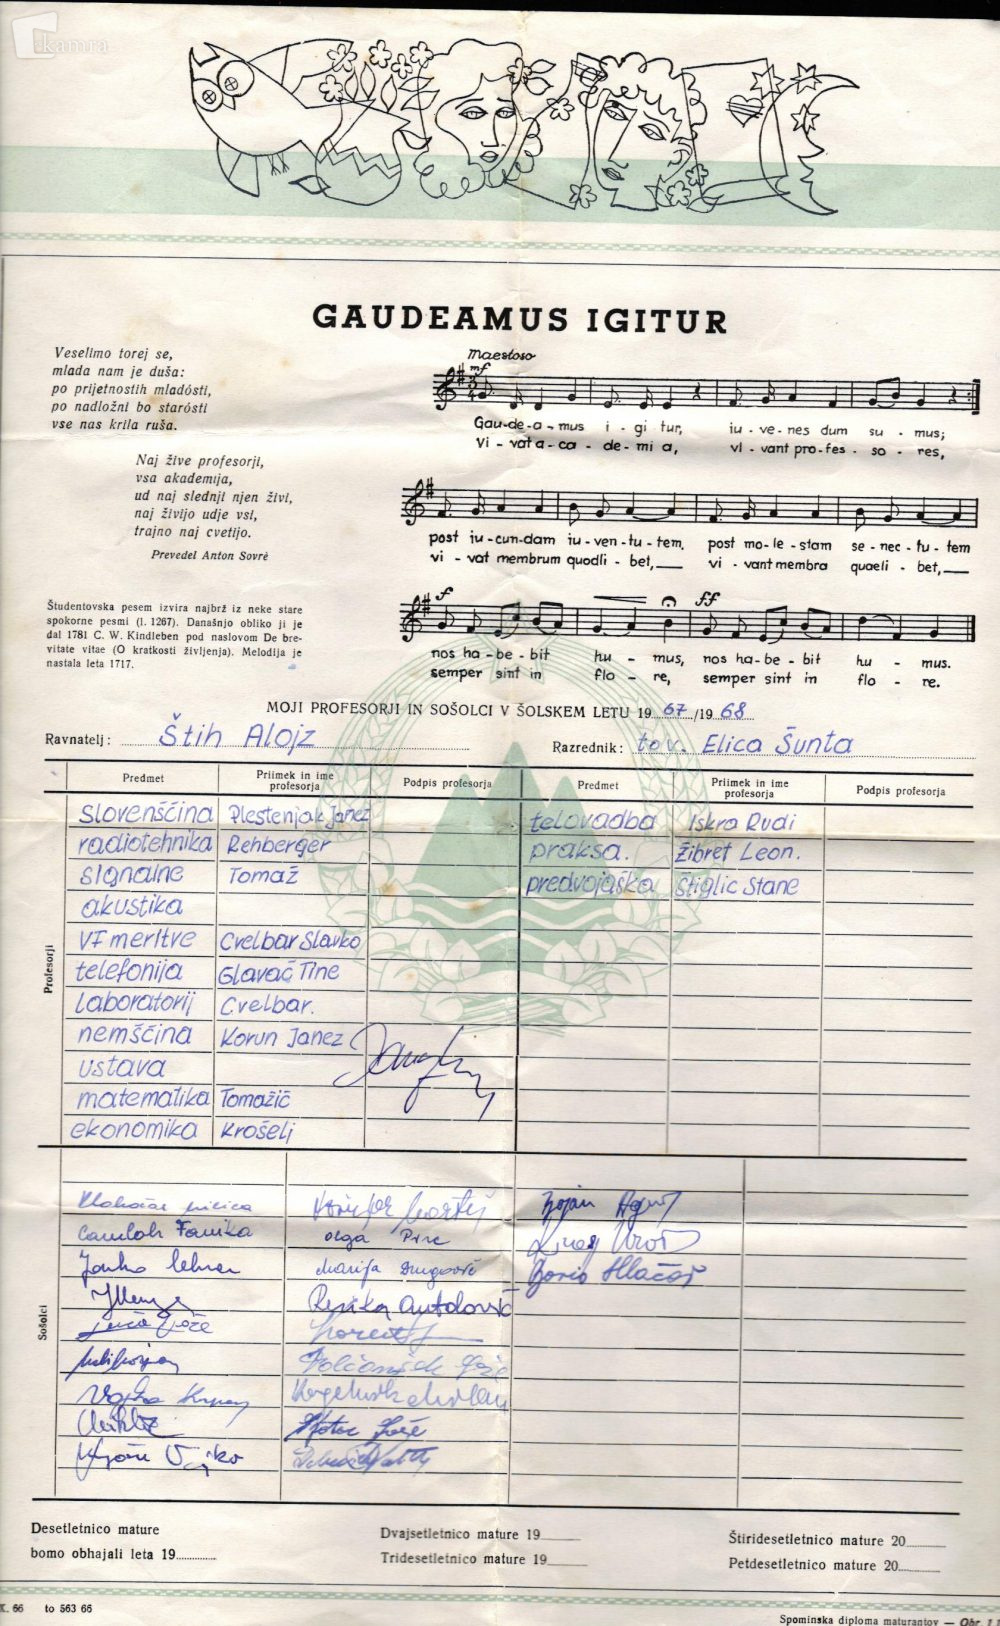 kamra
GAUDEAMUS IGITUR
Veselimo torej se,
mlada nam je duša:
po prijetnostih mladósti,
po nadložni bo starósti
vse nas krila ruša.
Naj žive profesorji,
vsa akademija,
ud naj slednji njen živi,
naj živijo udje vsi,
trajno naj cvetijo.
Prevedel Anton Sovrè
Študentovska pesem izvira najbrž iz neke stare
spokorne pesmi (l. 1267). Današnjo obliko ji je
dal 1781 C. W. Kindleben pod naslovom De bre-
vitate vitae (O kratkosti življenja). Melodija je
nastala leta 1717.
Maestoso
mf
Gau-de-a-mus i-gi tur, iu-ve-nes dum su-mus;
Vi-vat a-ca-de-mi a, vi-vant pro-fes-so-res,
post iu-cun-dam iu-ven-tu-tem, post mo-le-stam se-nec-tu-tem
vi-vat membrum quodli-bet, vi-vant membra quaeli-bet,
f ff
nos ha-be-bit hu-mus, nos ha-be-bit hu-mus.
semper sint in flo-re, semper sint in flo-re.
MOJI PROFESORJI IN SOŠOLCI V ŠOLSKEM LETU 19 67 /19 68
Ravnatelj: Štih Alojz Razrednik: tov. Elica Šunta
Predmet Priimek in ime profesorja Podpis profesorja Predmet Priimek in ime profesorja Podpis profesorja
Profesorji
slovenščina Plestenjak Janez telovadba Iskra Rudi
radiotehnika Rehberger praksa. Žibret Leon.
signalne Tomaž predvojaška Štiglic Stane
akustika
VF meritve Cvelbar Slavko
telefonija Glavač Tine
laboratorij Cvelbar.
nemščina Korun Janez
ustava
matematika Tomažič
ekonomika Krošelj
Sošolci
Bojan
Fanika Olga Pirc
Janko Marija Boris Hlačar
Resika Antolovič
Jože
Jože
Desetletnico mature Dvajsetletnico mature 19 Štiridesetletnico mature 20
bomo obhajali leta 19 Tridesetletnico mature 19 Petdesetletnico mature 20
K. 66 to 563 66
Spominska diploma maturantov — Obr. 1